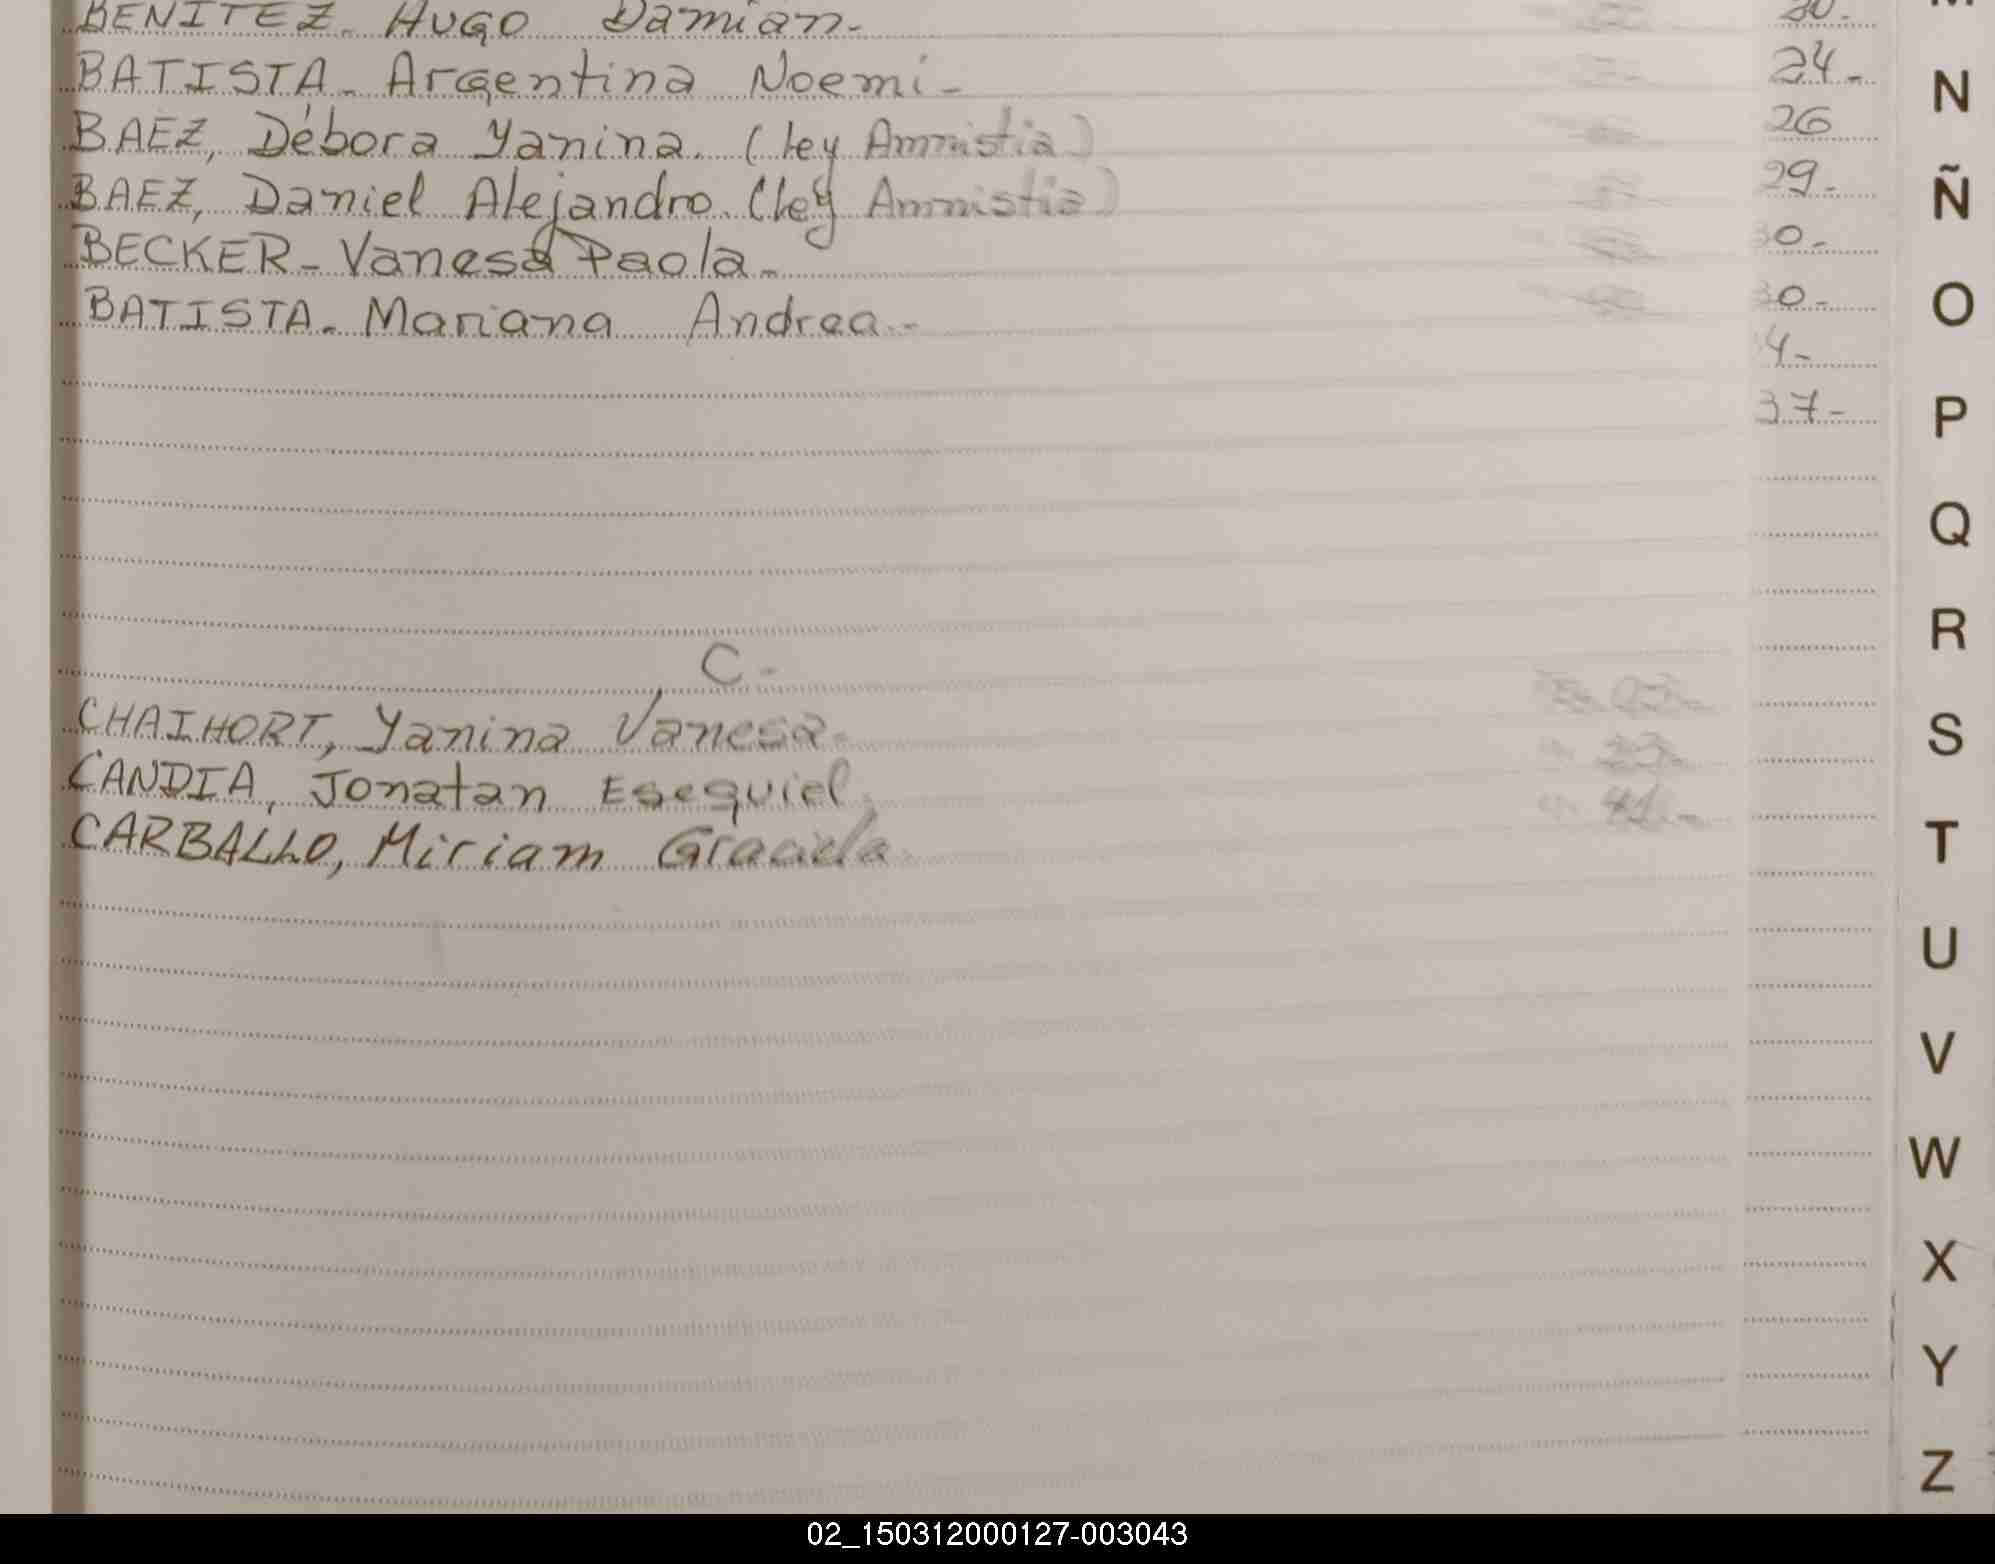 BENITEZ - HUGO Damian.
BATISTA - Argentina Noemi -
BAEZ, Débora Yanina. (ley Amnistia)
BAEZ, Daniel Alejandro. (ley Amnistia)
BECKER - Vanesa Paola -
BATISTA - Mariana Andrea -
C -
CHAIHORT, Yanina Vanesa.
CANDIA, Jonatan Esequiel
CARBALLO, Miriam Graciela
24 -
26
29 -
37 -
N
Ñ
O
P
Q
R
S
T
U
V
W
X
Y
Z
02_150312000127-003043